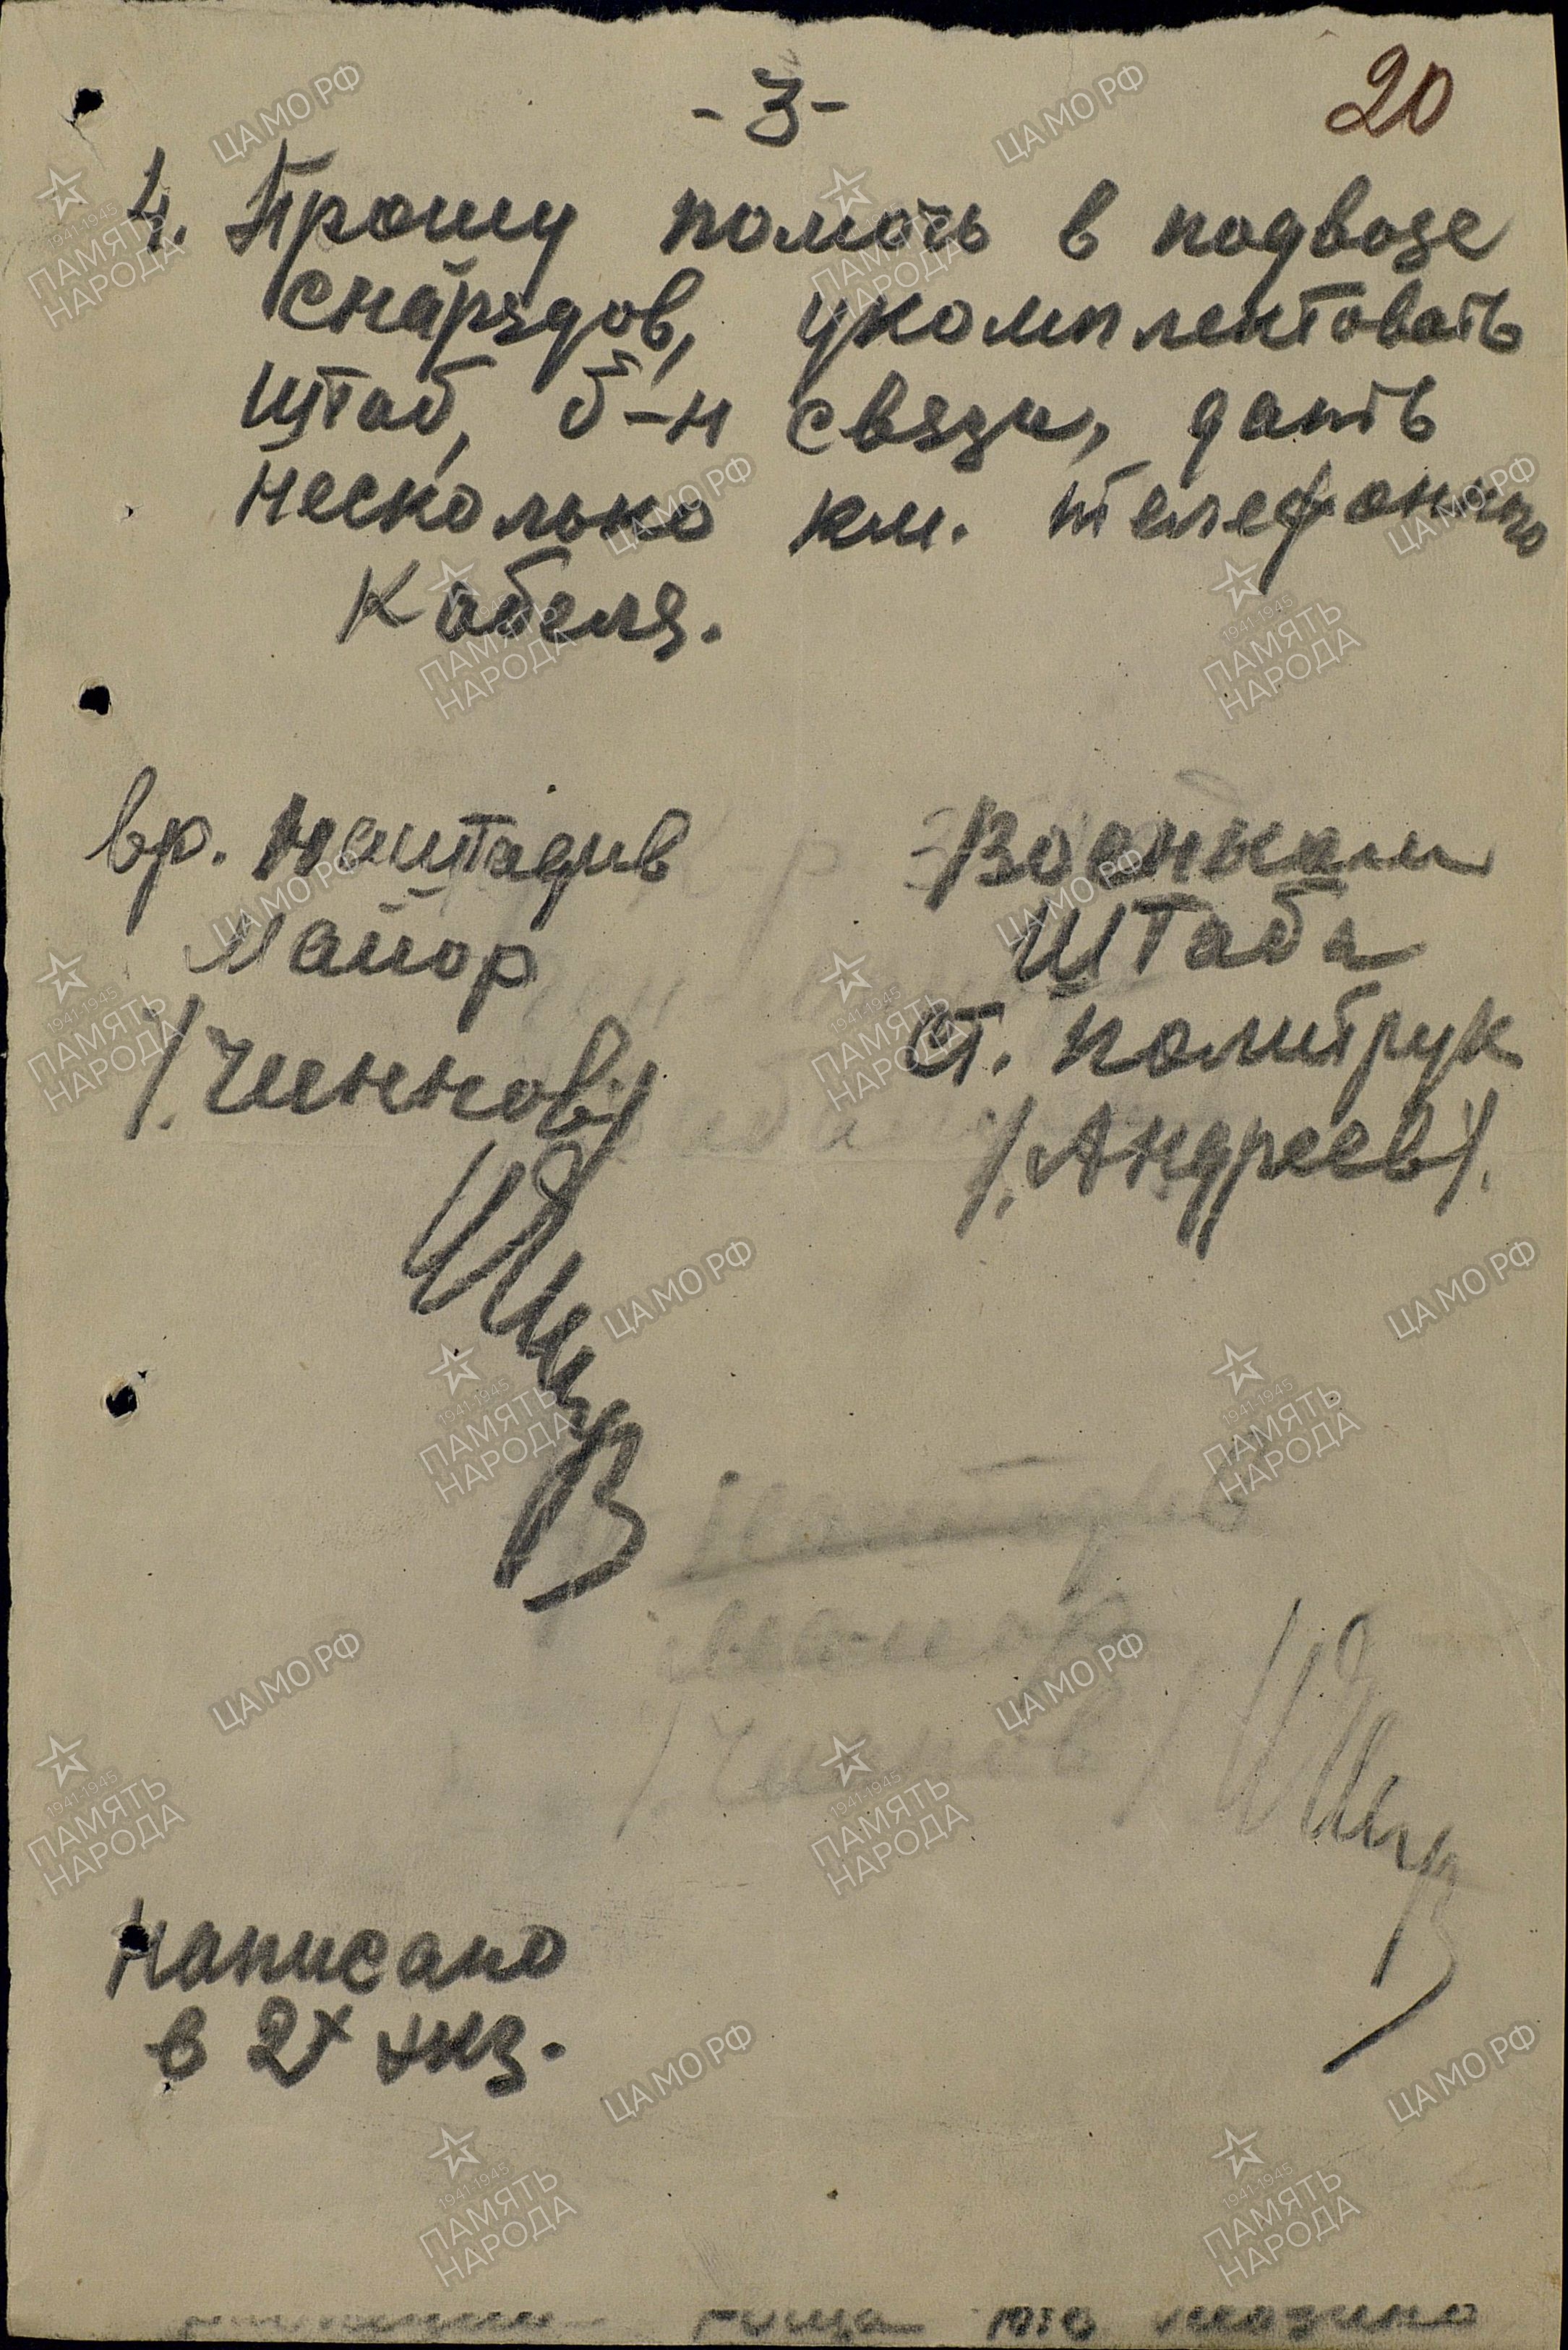 -3-
20
4. Прошу помочь в подвозе
снарядов, укомплектовать
штаб, б-н связи, дать
несколько км. телефонного
кабеля.
вр. Наштадив
Майор
/Чиннов/
Военком
Штаба
Ст. политрук
/Андреев/.
Наштадив
майор
/Чиннов/
Написано
в 2х экз.
ЦАМО РФ
1941-1945
ПАМЯТЬ
НАРОДА